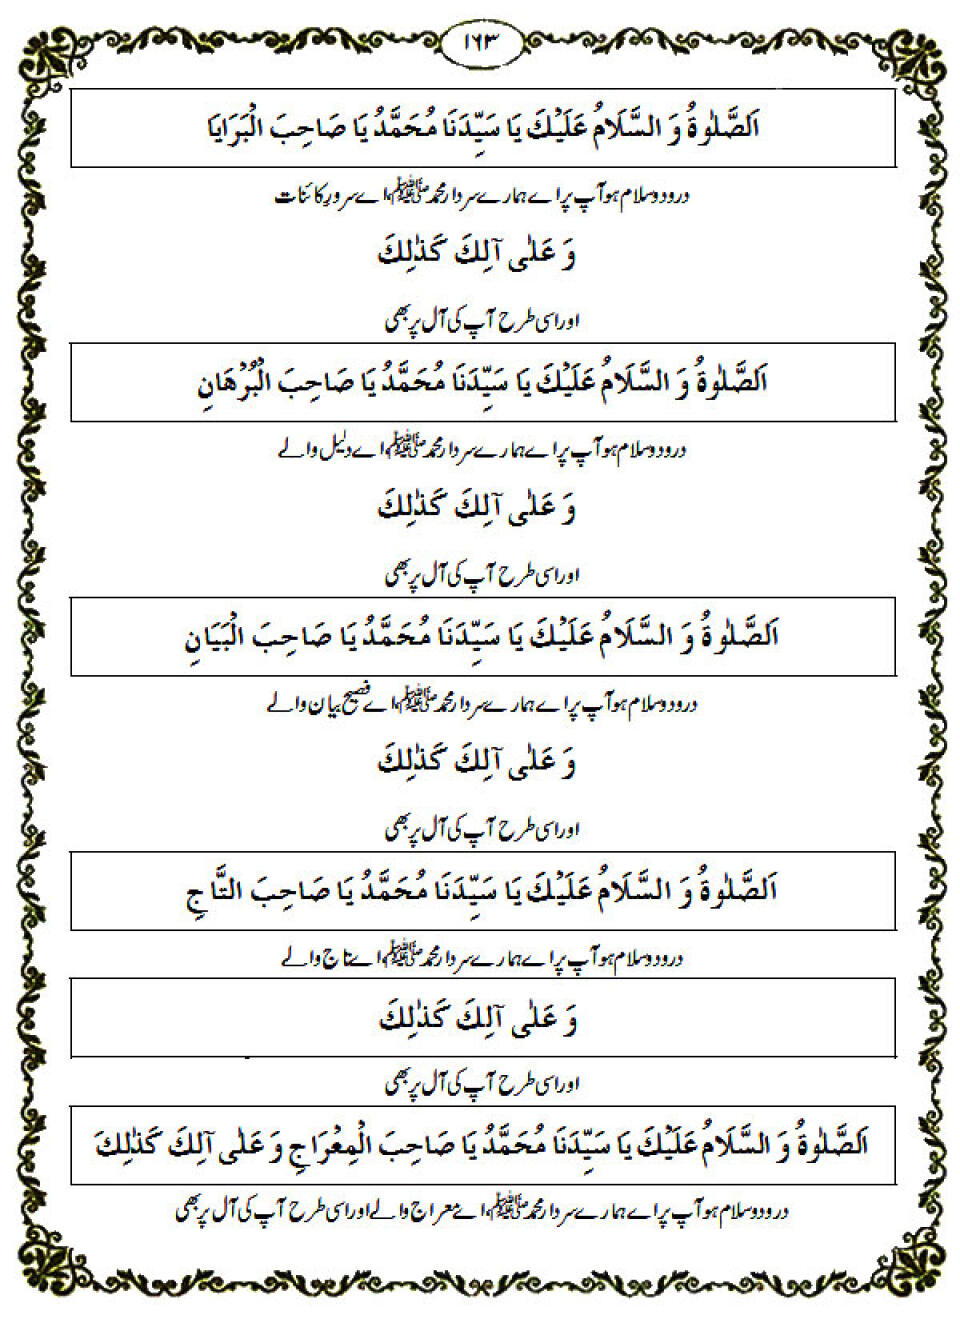 ۱۶۳
اَلصَّلٰوةُ وَ السَّلَامُ عَلَيْكَ يَا سَيِّدَنَا مُحَمَّدُ يَا صَاحِبَ الْبَرَايَا
درود و سلام ہو آپ پر اے ہمارے سردار محمد ﷺ، اے سرورِ کائنات
وَ عَلٰى آلِكَ كَذٰلِكَ
اور اسی طرح آپ کی آل پر بھی
اَلصَّلٰوةُ وَ السَّلَامُ عَلَيْكَ يَا سَيِّدَنَا مُحَمَّدُ يَا صَاحِبَ الْبُرْهَانِ
درود و سلام ہو آپ پر اے ہمارے سردار محمد ﷺ، اے دلیل والے
وَ عَلٰى آلِكَ كَذٰلِكَ
اور اسی طرح آپ کی آل پر بھی
اَلصَّلٰوةُ وَ السَّلَامُ عَلَيْكَ يَا سَيِّدَنَا مُحَمَّدُ يَا صَاحِبَ الْبَيَانِ
درود و سلام ہو آپ پر اے ہمارے سردار محمد ﷺ، اے فصیح بیان والے
وَ عَلٰى آلِكَ كَذٰلِكَ
اور اسی طرح آپ کی آل پر بھی
اَلصَّلٰوةُ وَ السَّلَامُ عَلَيْكَ يَا سَيِّدَنَا مُحَمَّدُ يَا صَاحِبَ التَّاجِ
درود و سلام ہو آپ پر اے ہمارے سردار محمد ﷺ، اے تاج والے
وَ عَلٰى آلِكَ كَذٰلِكَ
اور اسی طرح آپ کی آل پر بھی
اَلصَّلٰوةُ وَ السَّلَامُ عَلَيْكَ يَا سَيِّدَنَا مُحَمَّدُ يَا صَاحِبَ الْمِعْرَاجِ وَ عَلٰى آلِكَ كَذٰلِكَ
درود و سلام ہو آپ پر اے ہمارے سردار محمد ﷺ، اے معراج والے اور اسی طرح آپ کی آل پر بھی